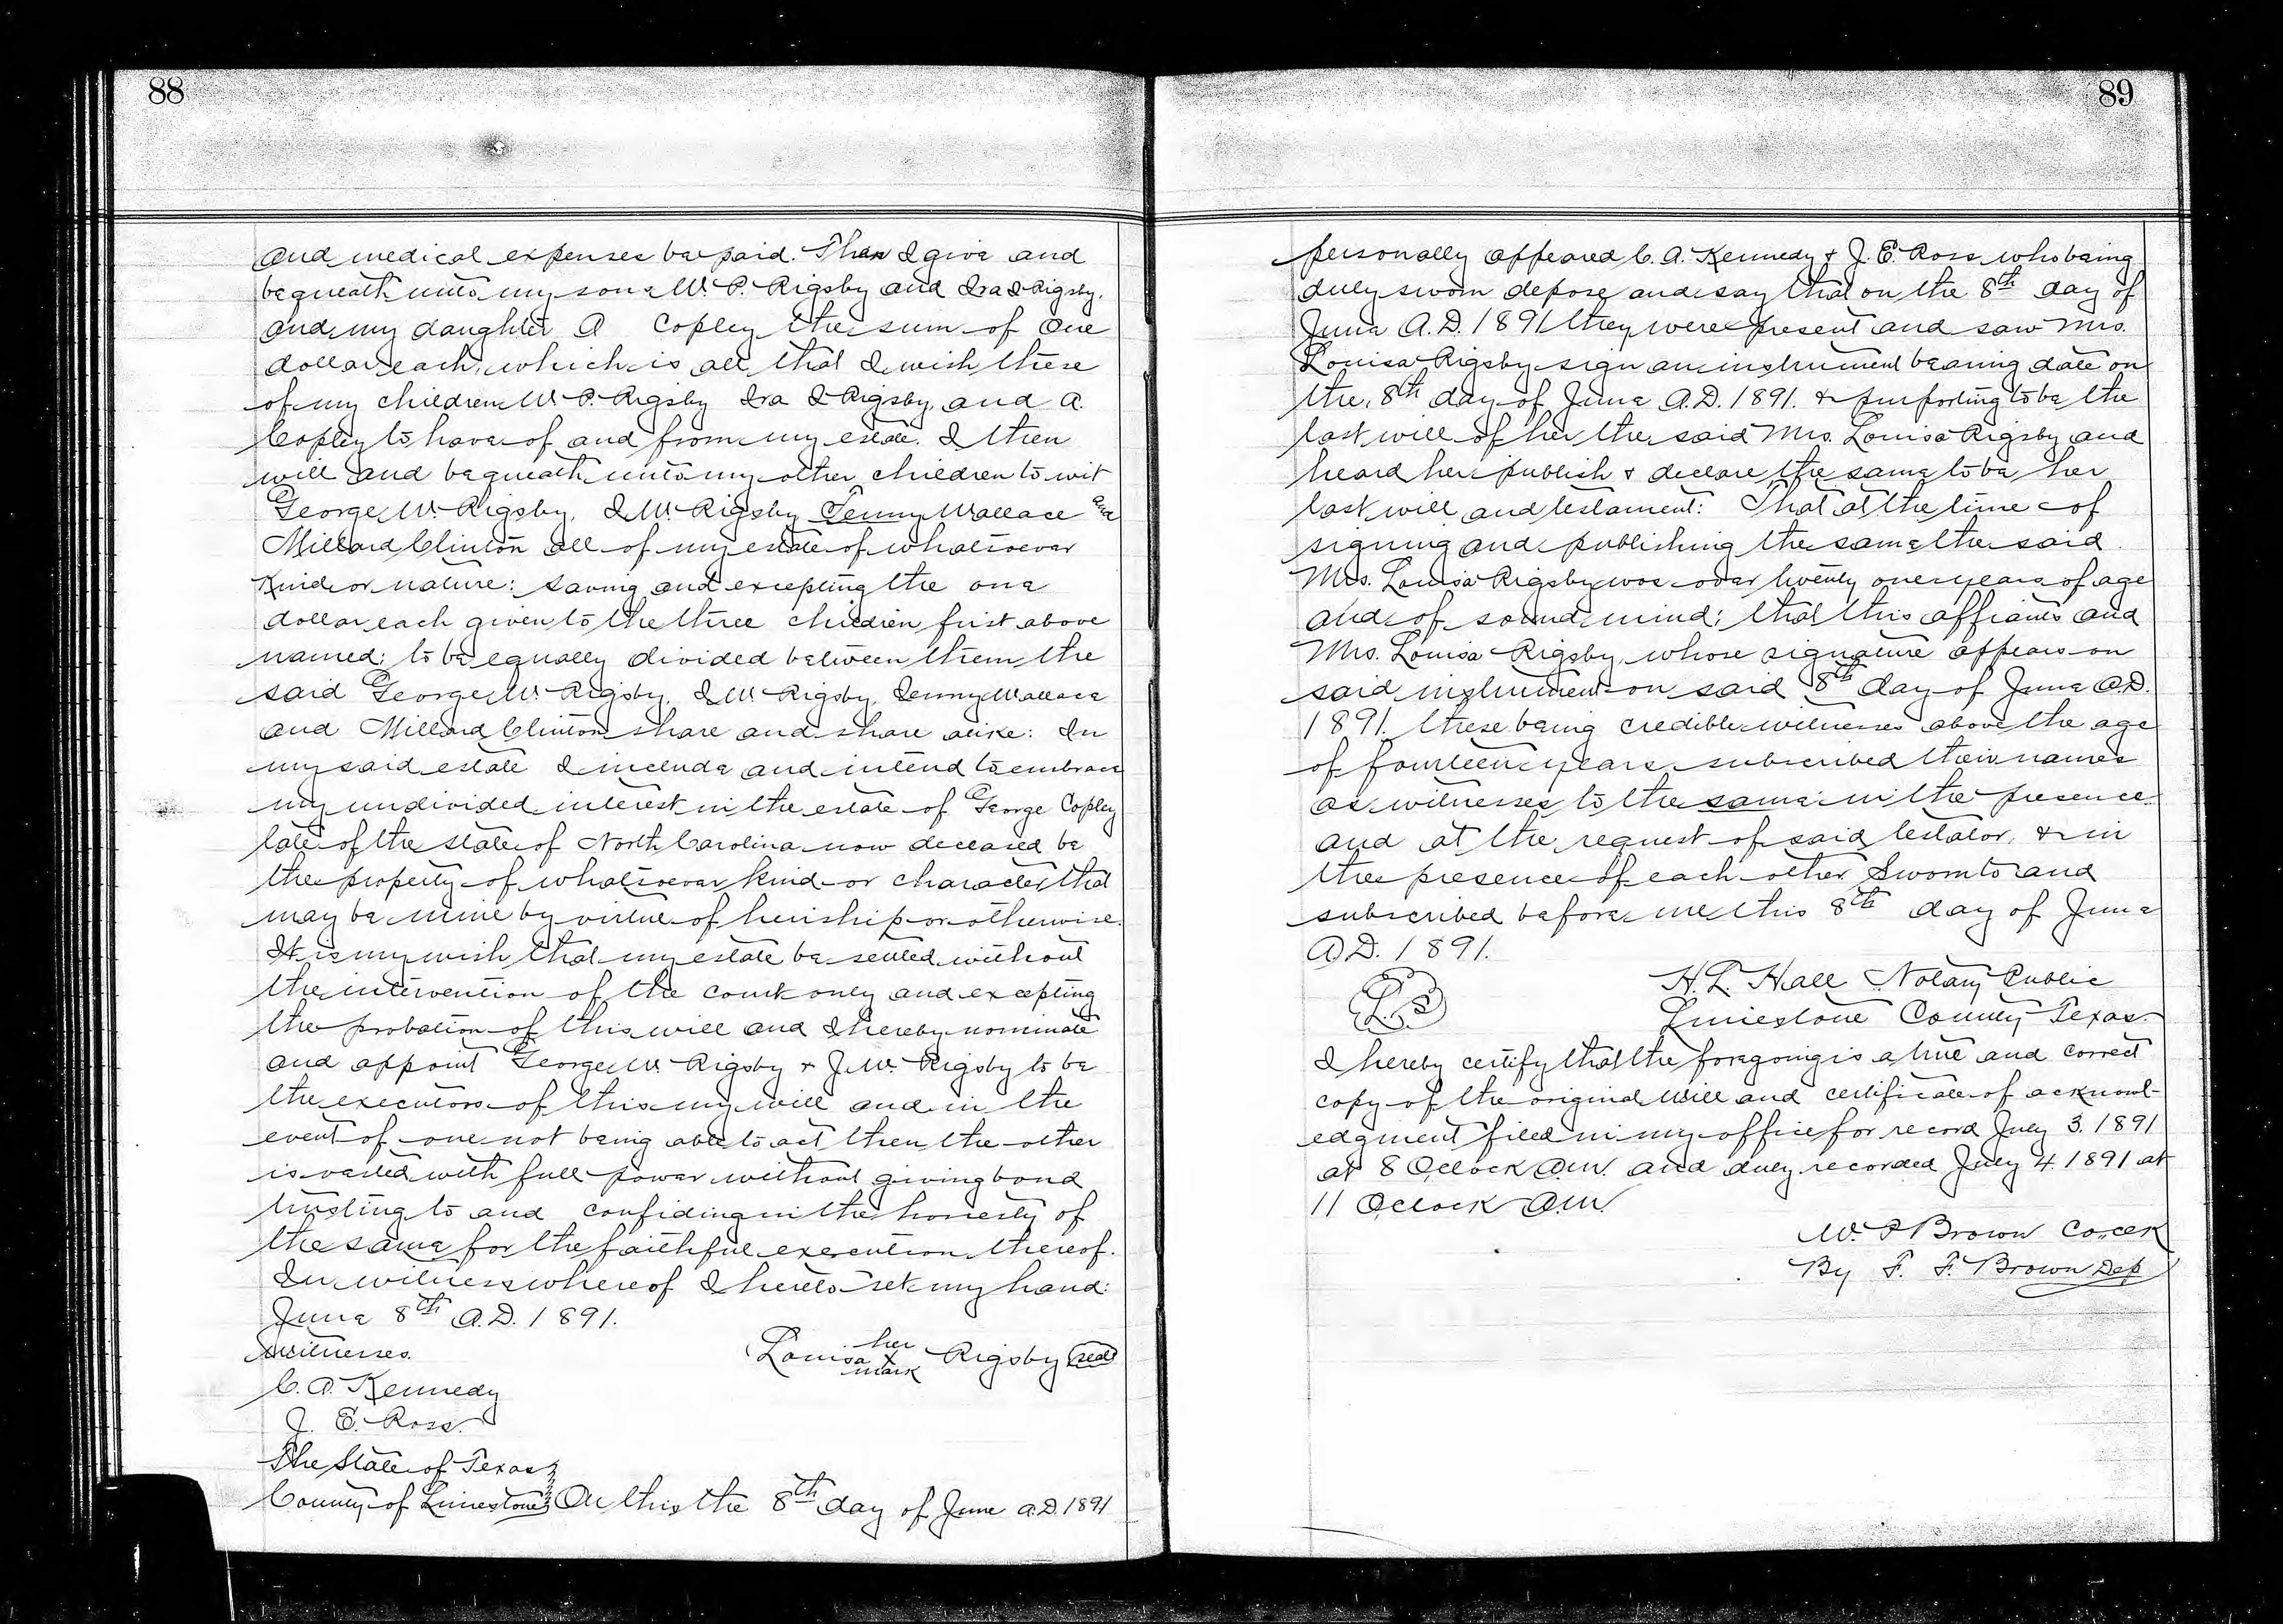 88
and medical expenses be paid. Then I give and
bequeath unto my sons W. P. Rigsby and Ira I Rigsby,
and my daughter A Copley the sum of one
dollar each, which is all that I wish these
of my children W. P. Rigsby Ira I Rigsby, and A.
Copley to have of and from my estate. I then
will and bequeath unto my other children to wit
George W. Rigsby, I W. Rigsby Jenny Wallace and
Millard Clinton all of my estate of whatsoever
Kind or nature: saving and excepting the one
dollar each given to the three children first above
named; to be equally divided between them, the
said George W. Rigsby, I W. Rigsby, Jenny Wallace
and Millard Clinton share and share alike: In
my said estate I include and intend to embrace
my undivided interest in the estate of George Copley
late of the state of North Carolina now deceased be
the property of whatsoever kind or character that
may be mine by virtue of heirship or otherwise.
It is my wish that my estate be settled without
the intervention of the court only and excepting
the probation of this will and I hereby nominate
and appoint George W. Rigsby & J. W. Rigsby to be
the executors of this my will and in the
event of one not being able to act then the other
is vested with full power without giving bond
trusting to and confiding in the honesty of
the same for the faithful execution thereof.
In witness whereof I hereto set my hand:
June 8th A.D. 1891.
Witnesses. Louisa her x mark Rigsby seal
C. A. Kennedy
J. E. Ross.
The State of Texas
County of Limestone On this the 8th day of June A.D. 1891
89
personally appeared C. A. Kennedy & J. E. Ross who being
duly sworn depose and say that on the 8th day of
June A.D. 1891 they were present and saw Mrs.
Louisa Rigsby sign an instrument bearing date on
the 8th day of June A.D. 1891. & purporting to be the
last will of her the said Mrs. Louisa Rigsby and
heard her publish & declare the same to be her
last will and testament: That at the time of
signing and publishing the same the said
Mrs. Louisa Rigsby was over twenty one years of age
and of sound mind; that this affiants and
Mrs. Louisa Rigsby, whose signature appears on
said instrument on said 8th day of June A.D.
1891. these being credible witnesses above the age
of fourteen years subscribed their names
as witnesses to the same in the presence
and at the request of said testator, & in
the presence of each other Sworn to and
subscribed before me this 8th day of June
A.D. 1891.
L.S. H. L. Hall Notary Public
Limestone County Texas.
I hereby certify that the foregoing is a true and correct
copy of the original Will and certificate of acknowl-
edgment filed in my office for record July 3. 1891
at 8 O,clock A.M. and duly recorded July 4 1891 at
11 O,clock A.M.
W. P Brown Co. clk
By F. F. Brown Dep